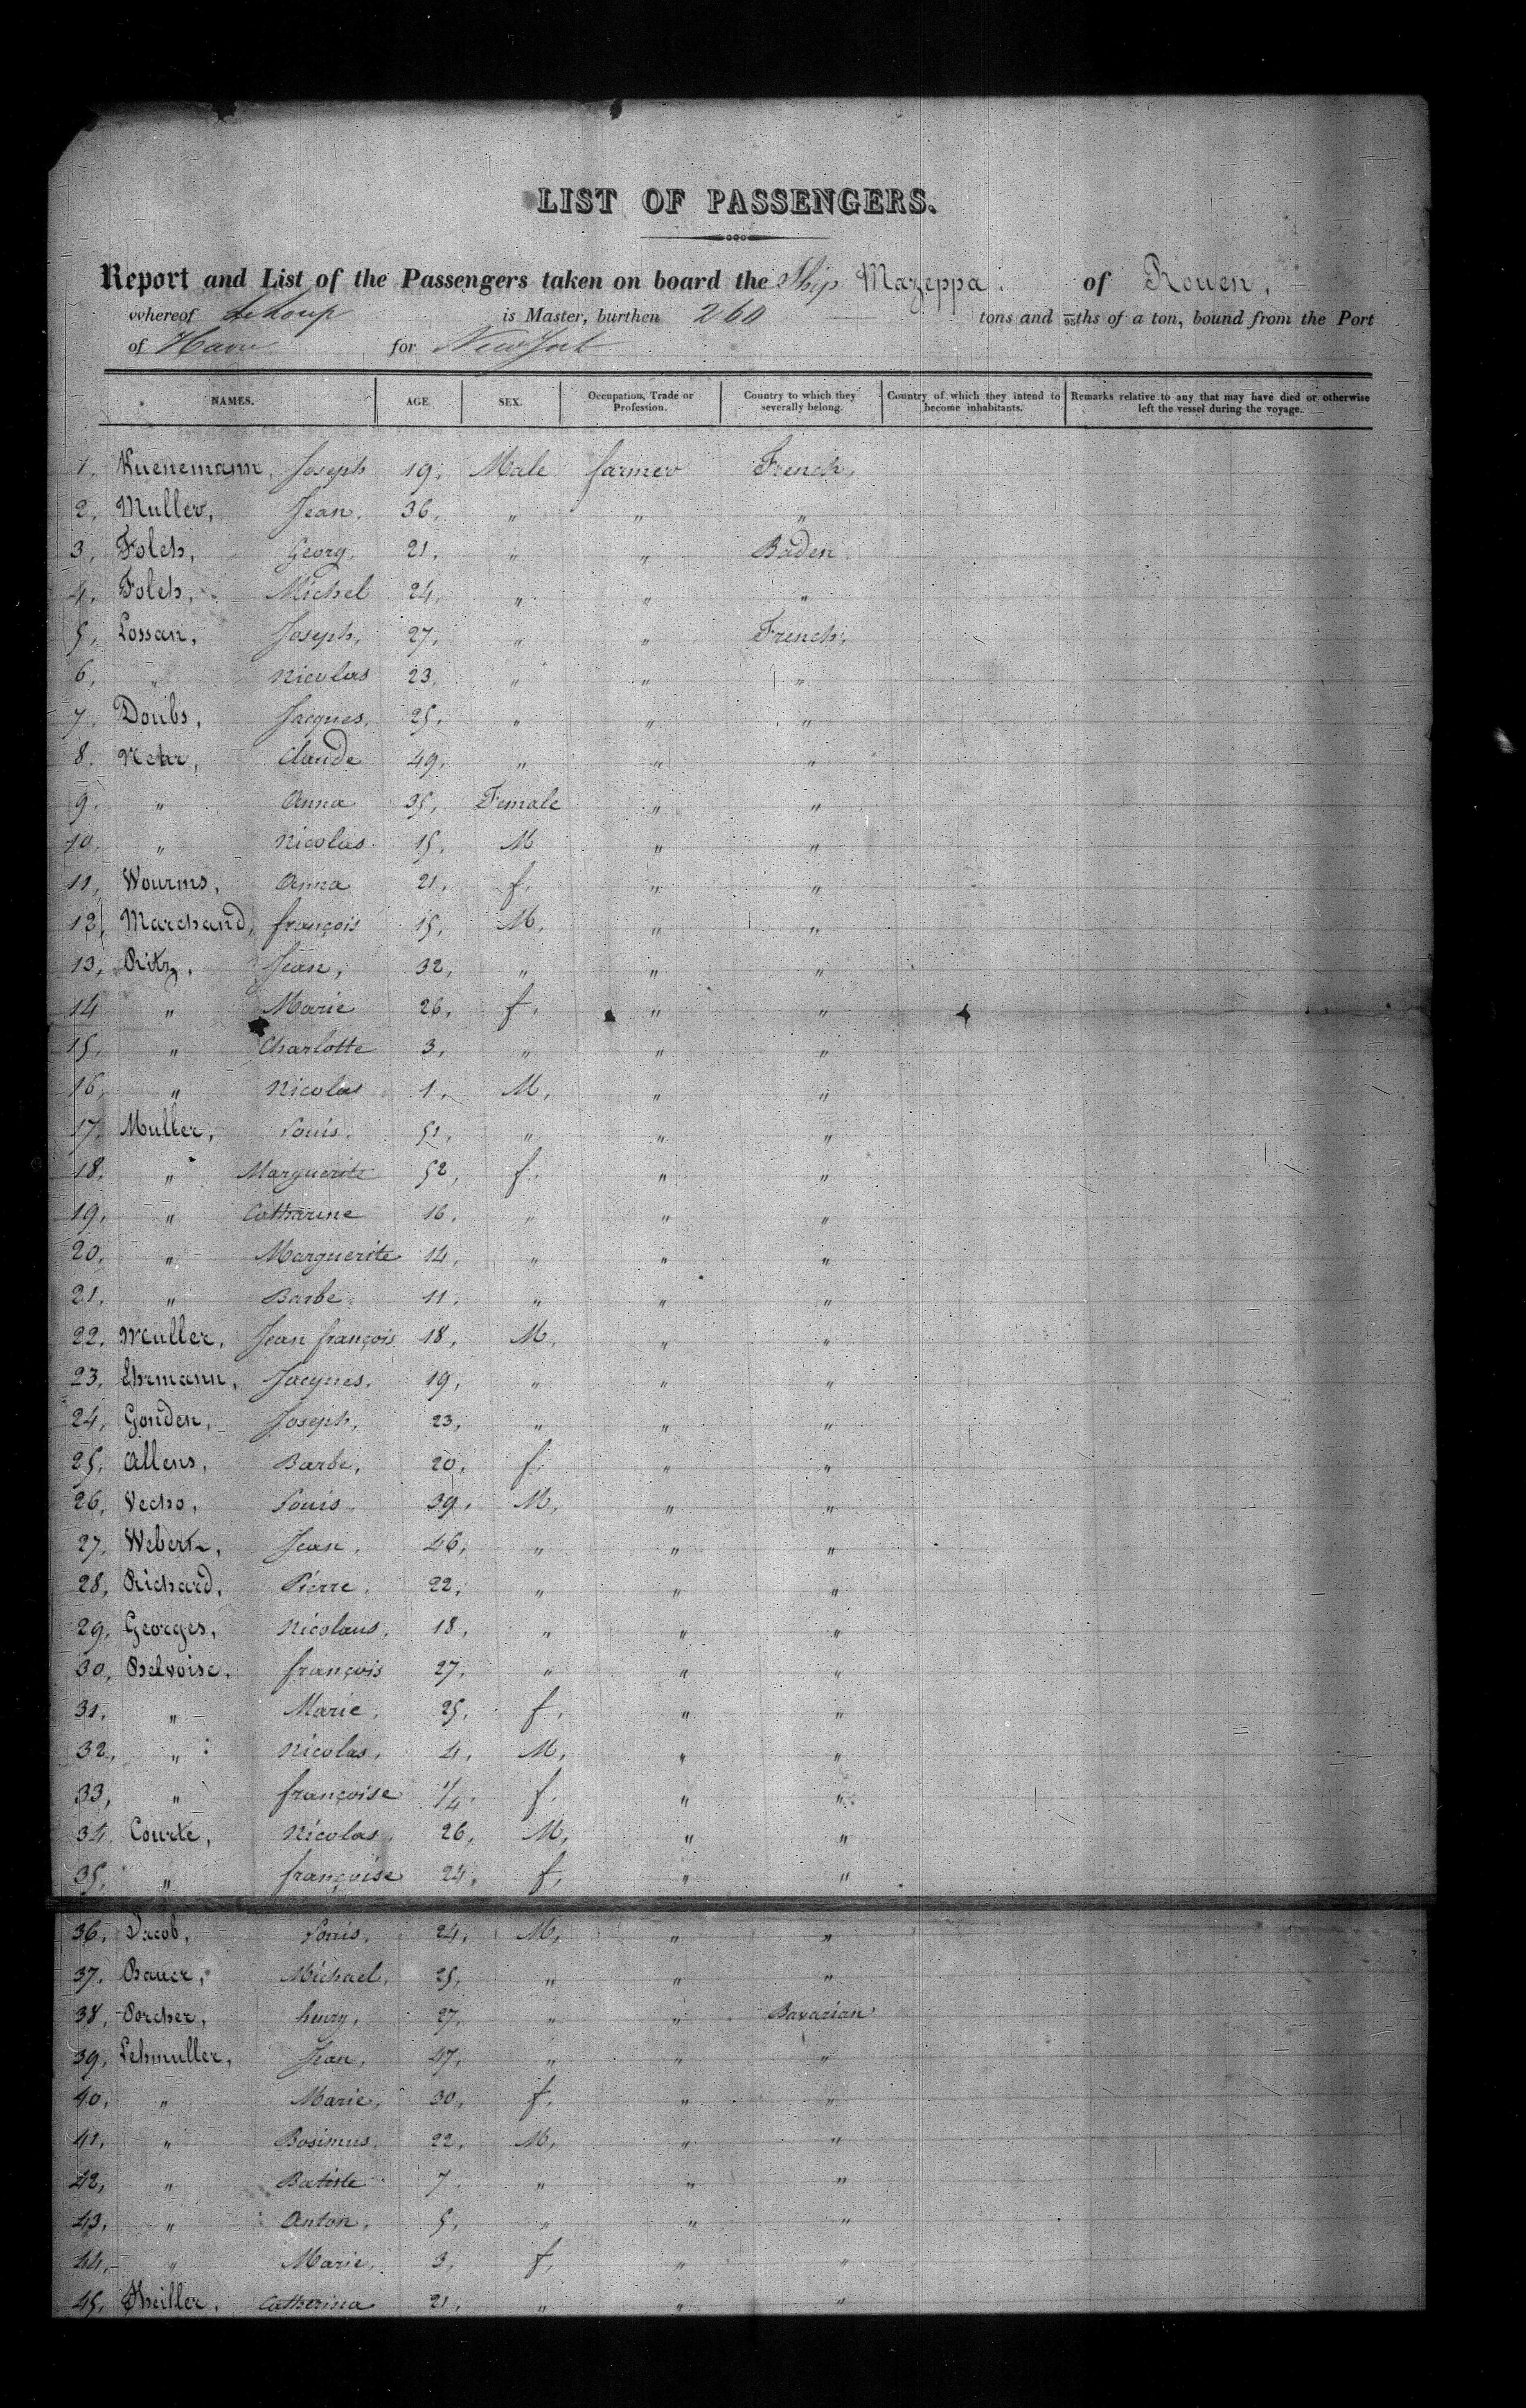 LIST OF PASSENGERS.
Report and List of the Passengers taken on board the Ship Mazeppa. of Rouen,
whereof is Master, burthen 260 tons and 95ths of a ton, bound from the Port
of Havre for New York
NAMES. AGE SEX. Occupation, Trade or Profession. Country to which they severally belong. Country of which they intend to become inhabitants. Remarks relative to any that may have died or otherwise left the vessel during the voyage.
1, Kuenemann, Joseph 19, Male farmer French,
2, Muller, Jean, 36, " " "
3, Folch, Georg, 21, " " Baden
4, Folch, Michel 24, " " "
5, Lossan, Joseph, 27, " " French,
6, " Nicolas 23, " " "
7, Doubs, Jacques, 25, " " "
8, Nehr, Claude 49, " " "
9, " Anna 35, Female " "
10, " Nicolas 15, M " "
11, Wourms, Anna 21, f, " "
12, Marchand, françois 15, M, " "
13, Ritz, Jean, 32, " " "
14 " Marie 26, f, " "
15, " Charlotte 3, " " "
16, " Nicolas 1, M, " "
17, Muller, Louis, 51, " " "
18, " Marguerite 52, f, " "
19, " Catharine 16, " " "
20, " Marguerite 14, " " "
21, " Barbe 11, " " "
22, Muller, Jean françois 18, M, " "
23, Ehrmann, Jacques, 19, " " "
24, Gonden, Joseph, 23, " " "
25, Allens, Barbe, 20, f, " "
26, Vecho, Louis 39, M, " "
27, Webert, Jean, 46, " " "
28, Richard, Pierre, 22, " " "
29, Georges, Nicolaus, 18, " " "
30, Belvoise, françois 27, " " "
31, " Marie, 25, f, " "
32, " Nicolas, 4, M, " "
33, " françoise 1/4, f, " "
34, Courte, Nicolas, 26, M, " "
35, " françoise 24, f, " "
36, Jacob, Louis, 24, M, " "
37, Bauer, Michael, 25, " " "
38, Porcher, henry, 27, " " Bavarian
39, Lehmuller, Jean, 47, " " "
40, " Marie, 30, f, " "
41, " Bosimus, 22, M, " "
42, " Batiste 7, " " "
43, " Anton, 5, " " "
44, " Marie, 3, f, " "
45, Theiller, Catherina 21, " " "